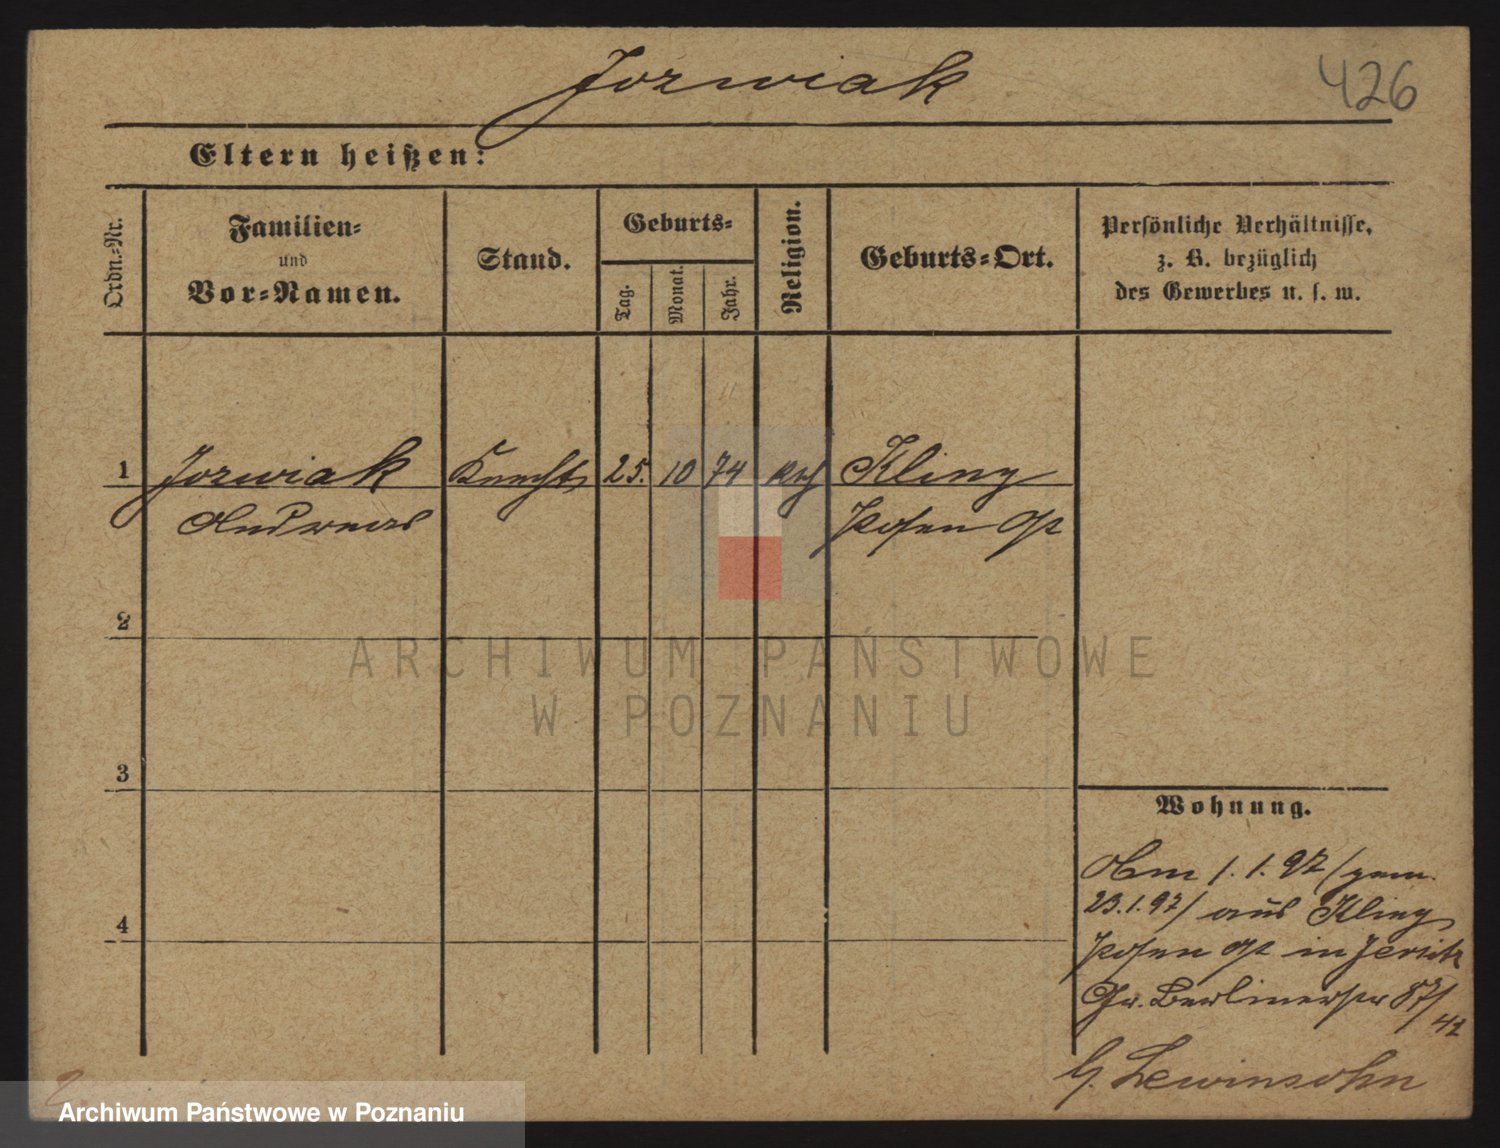 Jozwiak
426
Eltern heißen:
Ordn.-Nr.
Familien-
und
Vor-Namen.
Stand.
Geburts-
Tag.
Monat.
Jahr.
Religion.
Geburts-Ort.
Persönliche Verhältnisse,
z. B. bezüglich
des Gewerbes u. s. w.
1 Jozwiak Knecht 25. 10 74 kth Kliny
Andreas Posen Ost
2
ARCHIWUM PAŃSTWOWE
W POZNANIU
3
Wohnung.
Am 1.1.97 /gem.
23.1.97/ aus Kliny
Posen Ost in Jersitz
Gr. Berlinerstr 87/
42
4
G. Lewinsohn
Archiwum Państwowe w Poznaniu